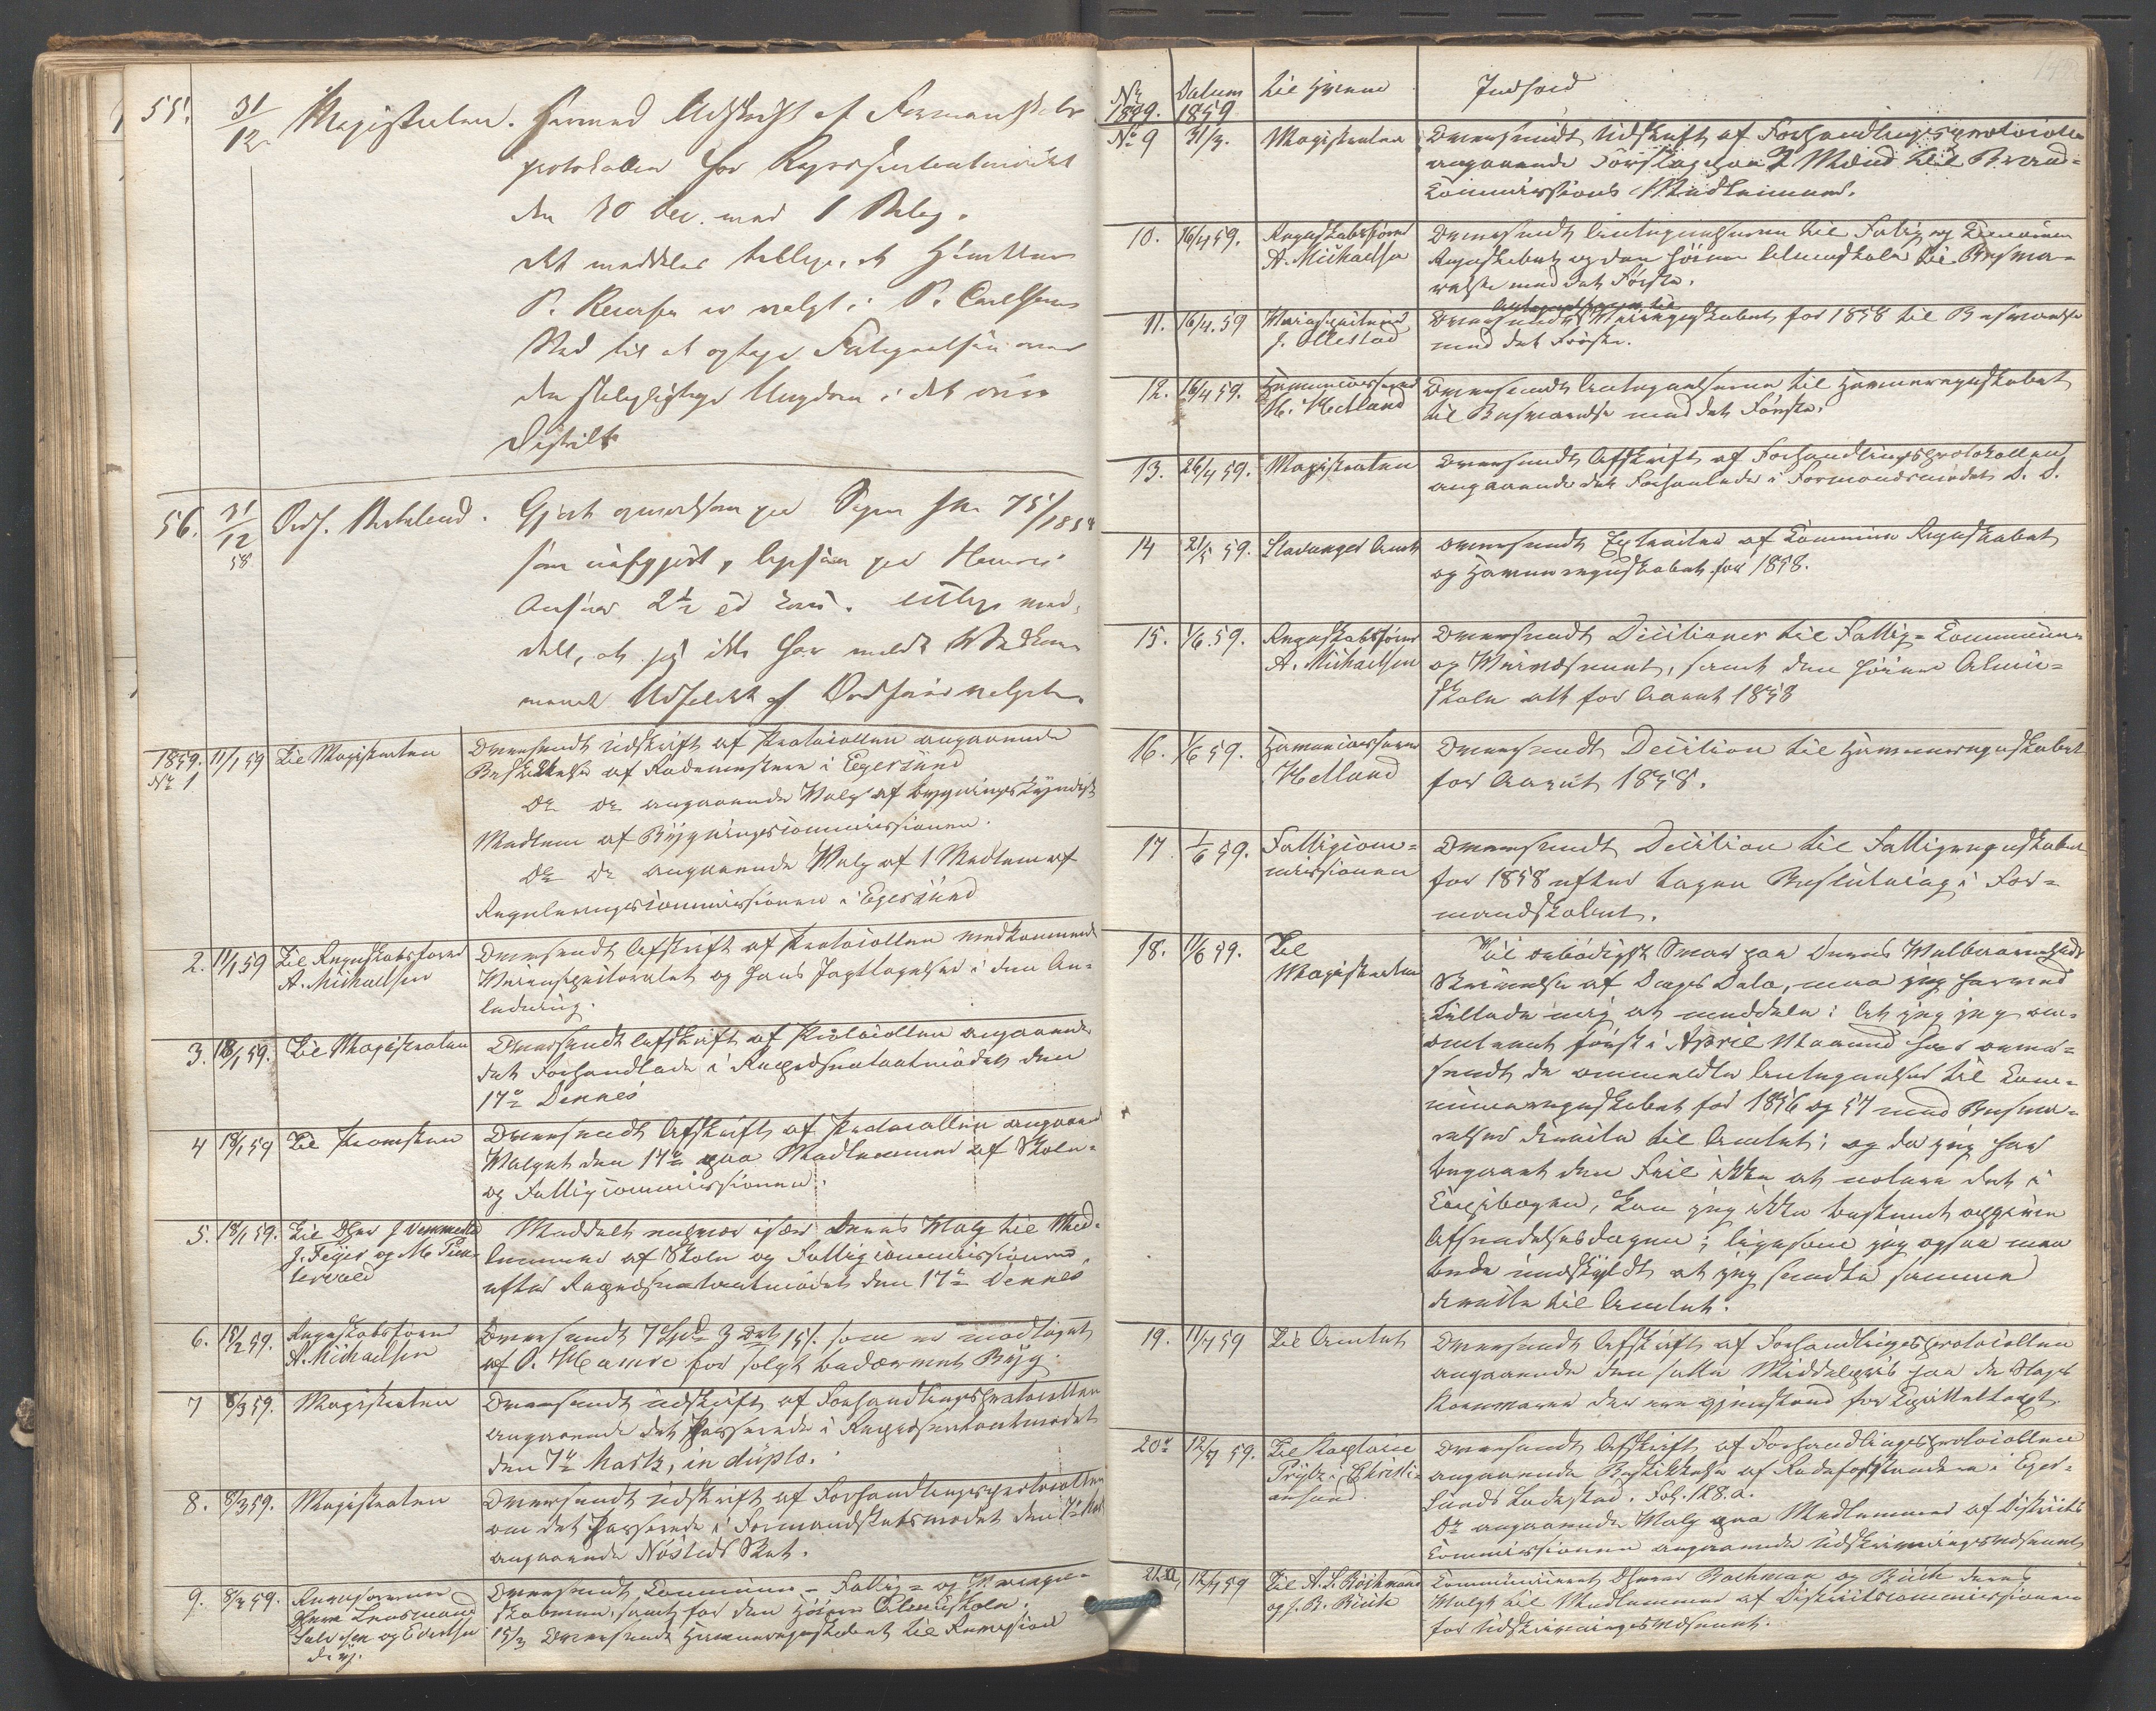 55. 31/12. Magistraten. Hermed Udskrift af Formandskabs
protokollen for Repræsentantmödet
den 30 Dec. med 1 Bilag.
det meddeles tillige, at
P. er valgt i P. Carlsens
Sted til at optage Fortegnelsen over
den skolepligtige Ungdom i det
District
56. 31/12 58 Ordf. Gjort opmærksom paa Sagen fra 75/1858
som uafgjort,
meddelt, at jeg ikke har
Udfaldet af Ordförervalget.
1859. No 1 11/1 59 Til Magistraten Oversendt Udskrift af Protocollen angaaende
Beskikkelse af Rodemestere i Egersund
Do Do angaaende Valg af bygningskyndigt
Medlem af Bygningscommissionen.
Do Do angaaende Valg af 1 Medlem af
Reguleringscommissionen i Egersund
2. 11/1 59 Til Regnskabsförer
A. Michaelsen
Oversendt Afskrift af Protocollen vedkommende
Veiinspectoratet og hans Jagttagelser i den An-
ledning.
3. 18/1 59. Til Magistraten Oversendt Afskrift af Protocollen angaaende
det Forhandlede i Repræsentantmödet den
17de Dennes
4 18/1 59 Til Provsten Oversendt Afskrift af Protocollen angaaende
Valget den 17de paa Medlemmer af Skole-
og Fattigcommissionen.
5. 18/1 59. Til Dhrr J
J. Feyer og M.
Meddelt enhver især Deres Valg til Med-
lemmer af Skole og Fattigcommissionen,
efter Repræsentantmödet den 17de Dennes
6. 15/2 59. Regnskabsförer
A. Michaelsen
Oversendt 7 Spd 3 15 s. som er modtaget
af O. Hamre for solgt bedærvet Byg.
7 8/3 59. Magistraten Oversendt Udskrift af Forhandlingsprotocollen
angaaende det Passerede i Repræsentantmödet
den 7de Marts, in duplo.
8. 8/3 59. Magistraten Oversendt Udskrift af Forhandlingsprotocollen
om det Passerede i Formandskabsmödet den 7de
angaaende Skat.
9. 8/3 59.
og
Oversendt Commune- Fattig- og
skaberne, samt for den höiere Almueskole.
15/3 Oversendt Havneregnskabet til Revision
No 1859. Datum 1859 Til Hvem Indhold
No 9 31/3. Magistraten Oversendt Udskrift af Forhandlingsprotocollen
angaaende Forslag paa 2 Mænd til Brand-
Commissions Medlemmer.
10. 16/4 59. Regnskabsförer
A. Michaelsen
Oversendt Antegnelserne til Fattig og Commune
Regnskabet og den höiere Almueskole til Besva-
relse med det Förste.
11. 16/4. 59
J. Ollestad
Antegnelserne til
Oversendt Veiregnskabet for 1858 til Besvarelse
med det Förste.
12. 16/4 59. Havnecasserer
Hetland
Oversendt Antegnelserne til Havneregnskabet
til Besvarelse med det Förste.
13. 26/4 59. Magistraten Oversendt Afskrift af Forhandlingsprotokollen
angaaende det Forhandlede i Formandsmödet D. D.
14 2/5 59. Stavanger Amt Oversendt Extracter af Commune Regnskabet
og Havneregnskabet for 1858.
15. 1/6. 59. Regnskabsförer
A. Michaelsen
Oversendt Decisioner til Fattig- Commune-
og Veivæsenet, samt den höiere Almue-
skole alt for Aaret 1858
16. 1/6 59. Havnecasserer
Hetland
Oversendt Decision til Havneregnskabet
for Aaret 1858.
17 1/6 59. Fattigcom-
missionen
Oversendt Decision til Fattigregnskabet
for 1858 efter tagen Beslutning i For-
mandskabet.
18. 11/6 59. Til
Magistraten
Til ærbödigst Svar paa Deres Velbaarenheds
Skrivelse af Dags Dato, maa jeg herved
tillade mig at meddele: At jeg jeg om-
omtrent först i April Maaned har over-
sendt de ommeldte Antegnelser til Com-
muneregnskabet for 1856 og 57 med Besva-
relser directe til Amtet; og da jeg har
begaaet den Feil ikke at notere det i
Copibogen, kan jeg ikke bestemt opgive
Afsendelsesdagen; ligesom jeg ogsaa maa
bede undskyldt at jeg sendte samme
directe til Amtet.
19. 11/7 59 Til Amtet Oversendt Afskrift af Forhandlingsprotocollen
angaaende den satte Middelpris paa de Slags
Kornvarer der ere gjenstand for Capitelstaxt.
20. 12/7 59. Til Captain
Prytz i Christi-
ansand
Oversendt Afskrift af Forhandlingsprotocollen
angaaende Beskikkelse af Rodeforstandere i Eger-
sunds Ladested. Fol. 128. a.
Do angaaende Valg paa Medlemmer af Districts
Commissionen angaaende Udskrivningsvæsenet
21. 12/7 59 Til A. L.
og J. B. Puch
Communiceret Dherrer Bochman og Puch deres
Valg til Medlemmer af Districtscommissionen
for Udskrivningsvæsenet.